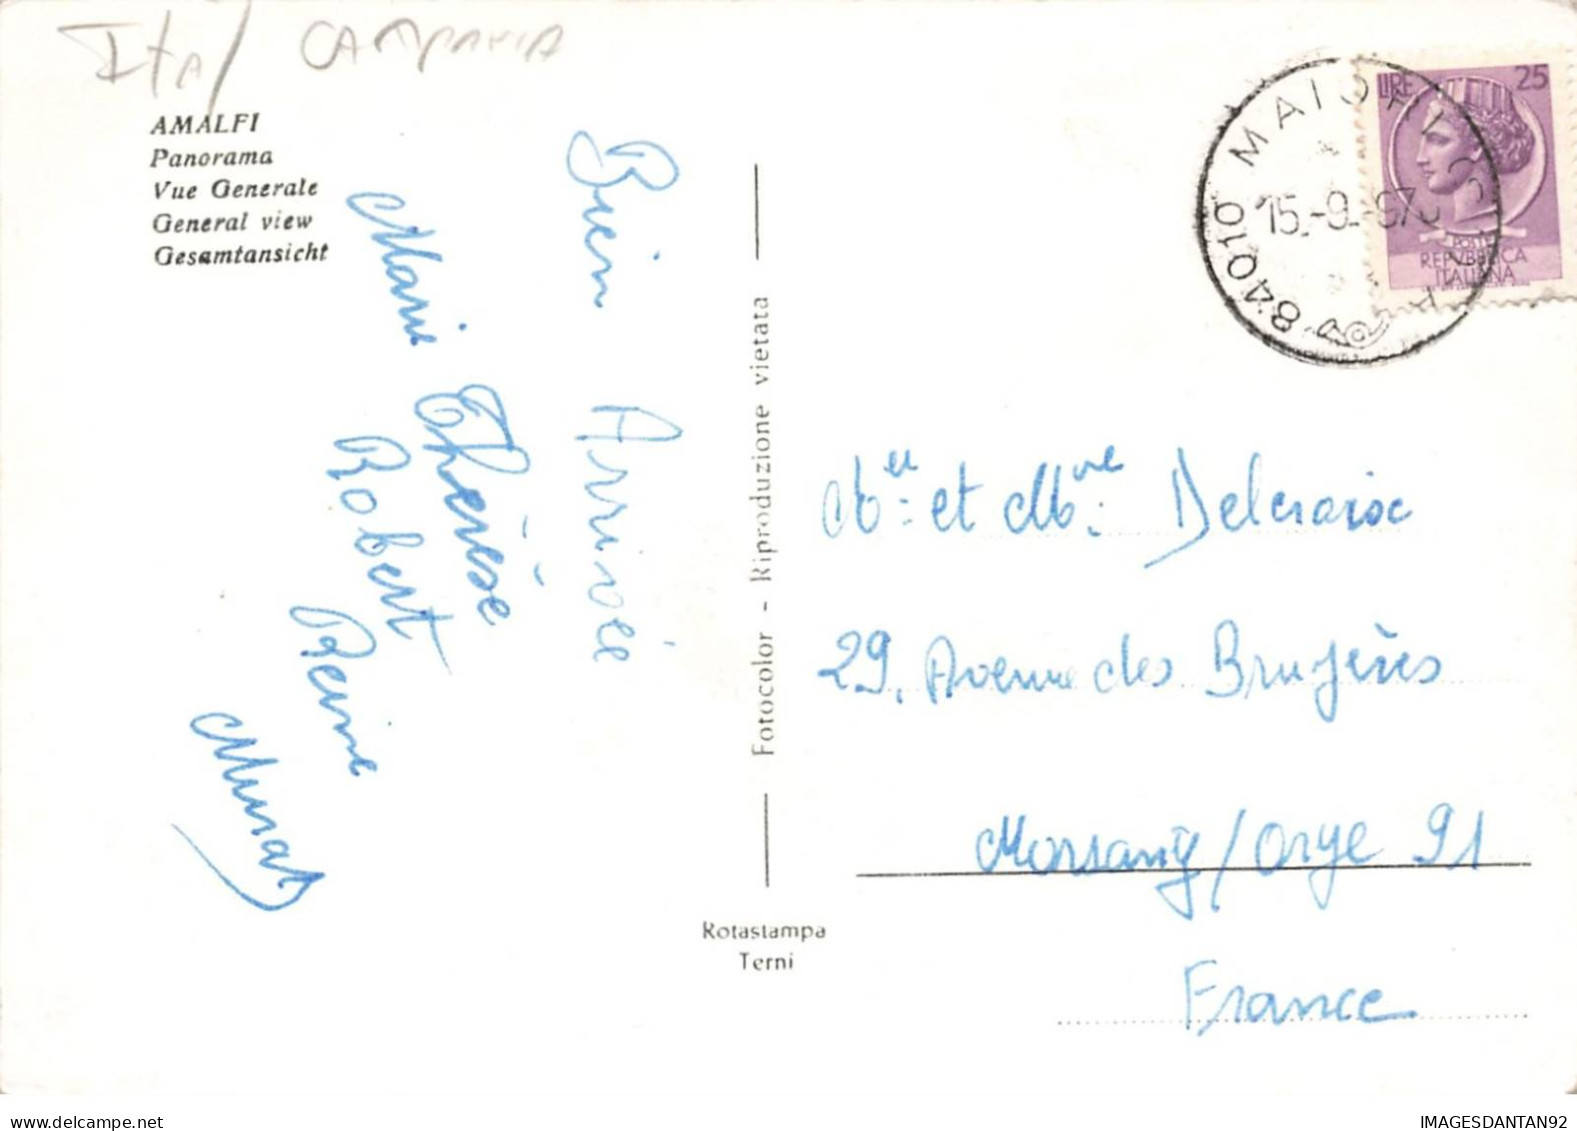 Ita/ CAMPANIA
AMALFI
Panorama
Vue Generale
General view
Gesamtansicht
Bien Arrivée
Marie Thérèse
Robert
Reine
Murat
Fotocolor - Riproduzione vietata
Rotastampa
Terni
84010 MAIORI
15.-9.-
LIRE 25
POSTE
REPVBBLICA
ITALIANA
et Delcroix
29, Avenue des Bruyères
Morsang/Orge 91
France
IMAGESDANTAN92